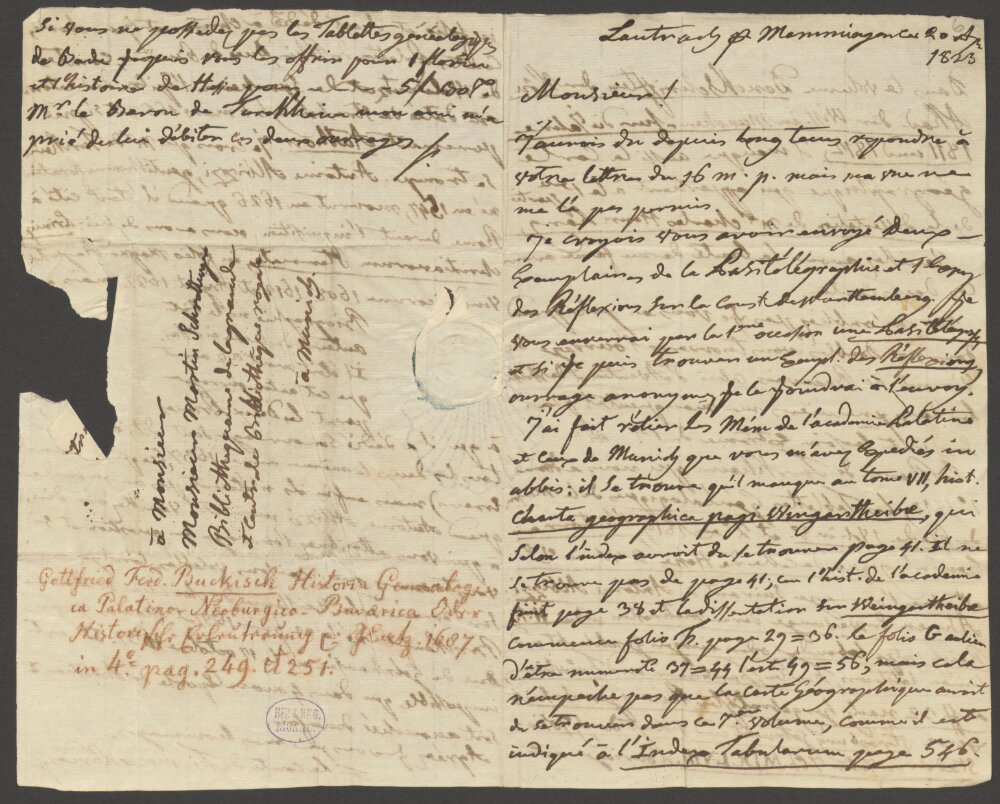 Lautrach p Memmingen ce 20
1823
Monsieur!
J'aurois du depuis longtems repondre à
votre lettre du 16 m. p. mais ma vue ne
me l'a pas permis.
Je croyois vous avoir envoyé deux
Exemplaires de la Pasitélégraphie et 1 Copey
des Réflexions sur la Const. de Wurttemberg. Je
vous enverrai par la 1ere occasion une Pasitélegr.
et si je puis trouver un Exempl. des Réflexions,
ouvrage anonyme, je le joindrai à l'envoy.
J'ai fait rélier les Mém. de l'academie Palatine
et ceux de Munich que vous m'avez Expediés in
albis: il se trouve qu'il manque au tome VII, hist.
Charta geographica pagi Wingartheibæ, qui
selon l'index auroit du se trouver page 41. Il ne
se trouve pas de page 41, car l'hist. de l'academie
finit page 38 et la dissertation sur Weingartheibæ
commence folio page 29=36. le folio G au lieu
d'être numeroté 37=44 l'est 49=56, mais cela
n'empeche pas que la carte Géographique auroit
du se trouver dans ce 7me volume, comme il est
indiqué à l'Index Tabularum page 546.
Si vous ne possedez pas les Tablettes généalogiques
de Bade je puis vous les offrir pour 1 florin
et l'histoire de Hesse pour 5
Mr. le Baron de Turckheim mon ami m'a
prié de lui débiter ces deux ouvrages
à Monsieur
Monsieur Martin Schrettinger
Bibliothequaire de la grande
et Centrale Bibliothèque royale
à Munich.
Gottfried Ferd. Buckisch Historia Genealogi-
ca Palatino-Neoburgico-Bavarica Oder
Historische Erleutrung 1687
in 4o pag. 249 et 251.